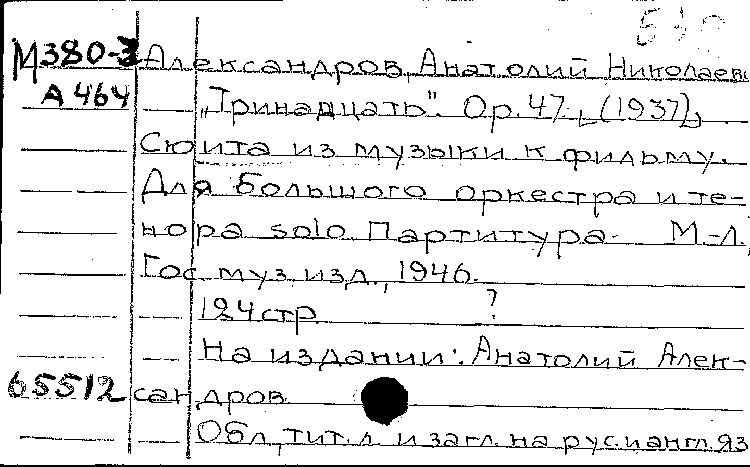 М380-3 Александров, Анатолий Николаеви
А464 „Тринадцать". Ор. 47. [(1937)]
Сюита из музыки к фильму.
Для большого оркестра и те-
нора solo. Партитура. М.-Л.,
Гос. муз. изд., 1946.
124 стр. ?
На издании: Анатолий Алек-
65512 сандров.
Обл., тит. л. и загл. на рус. и англ. яз